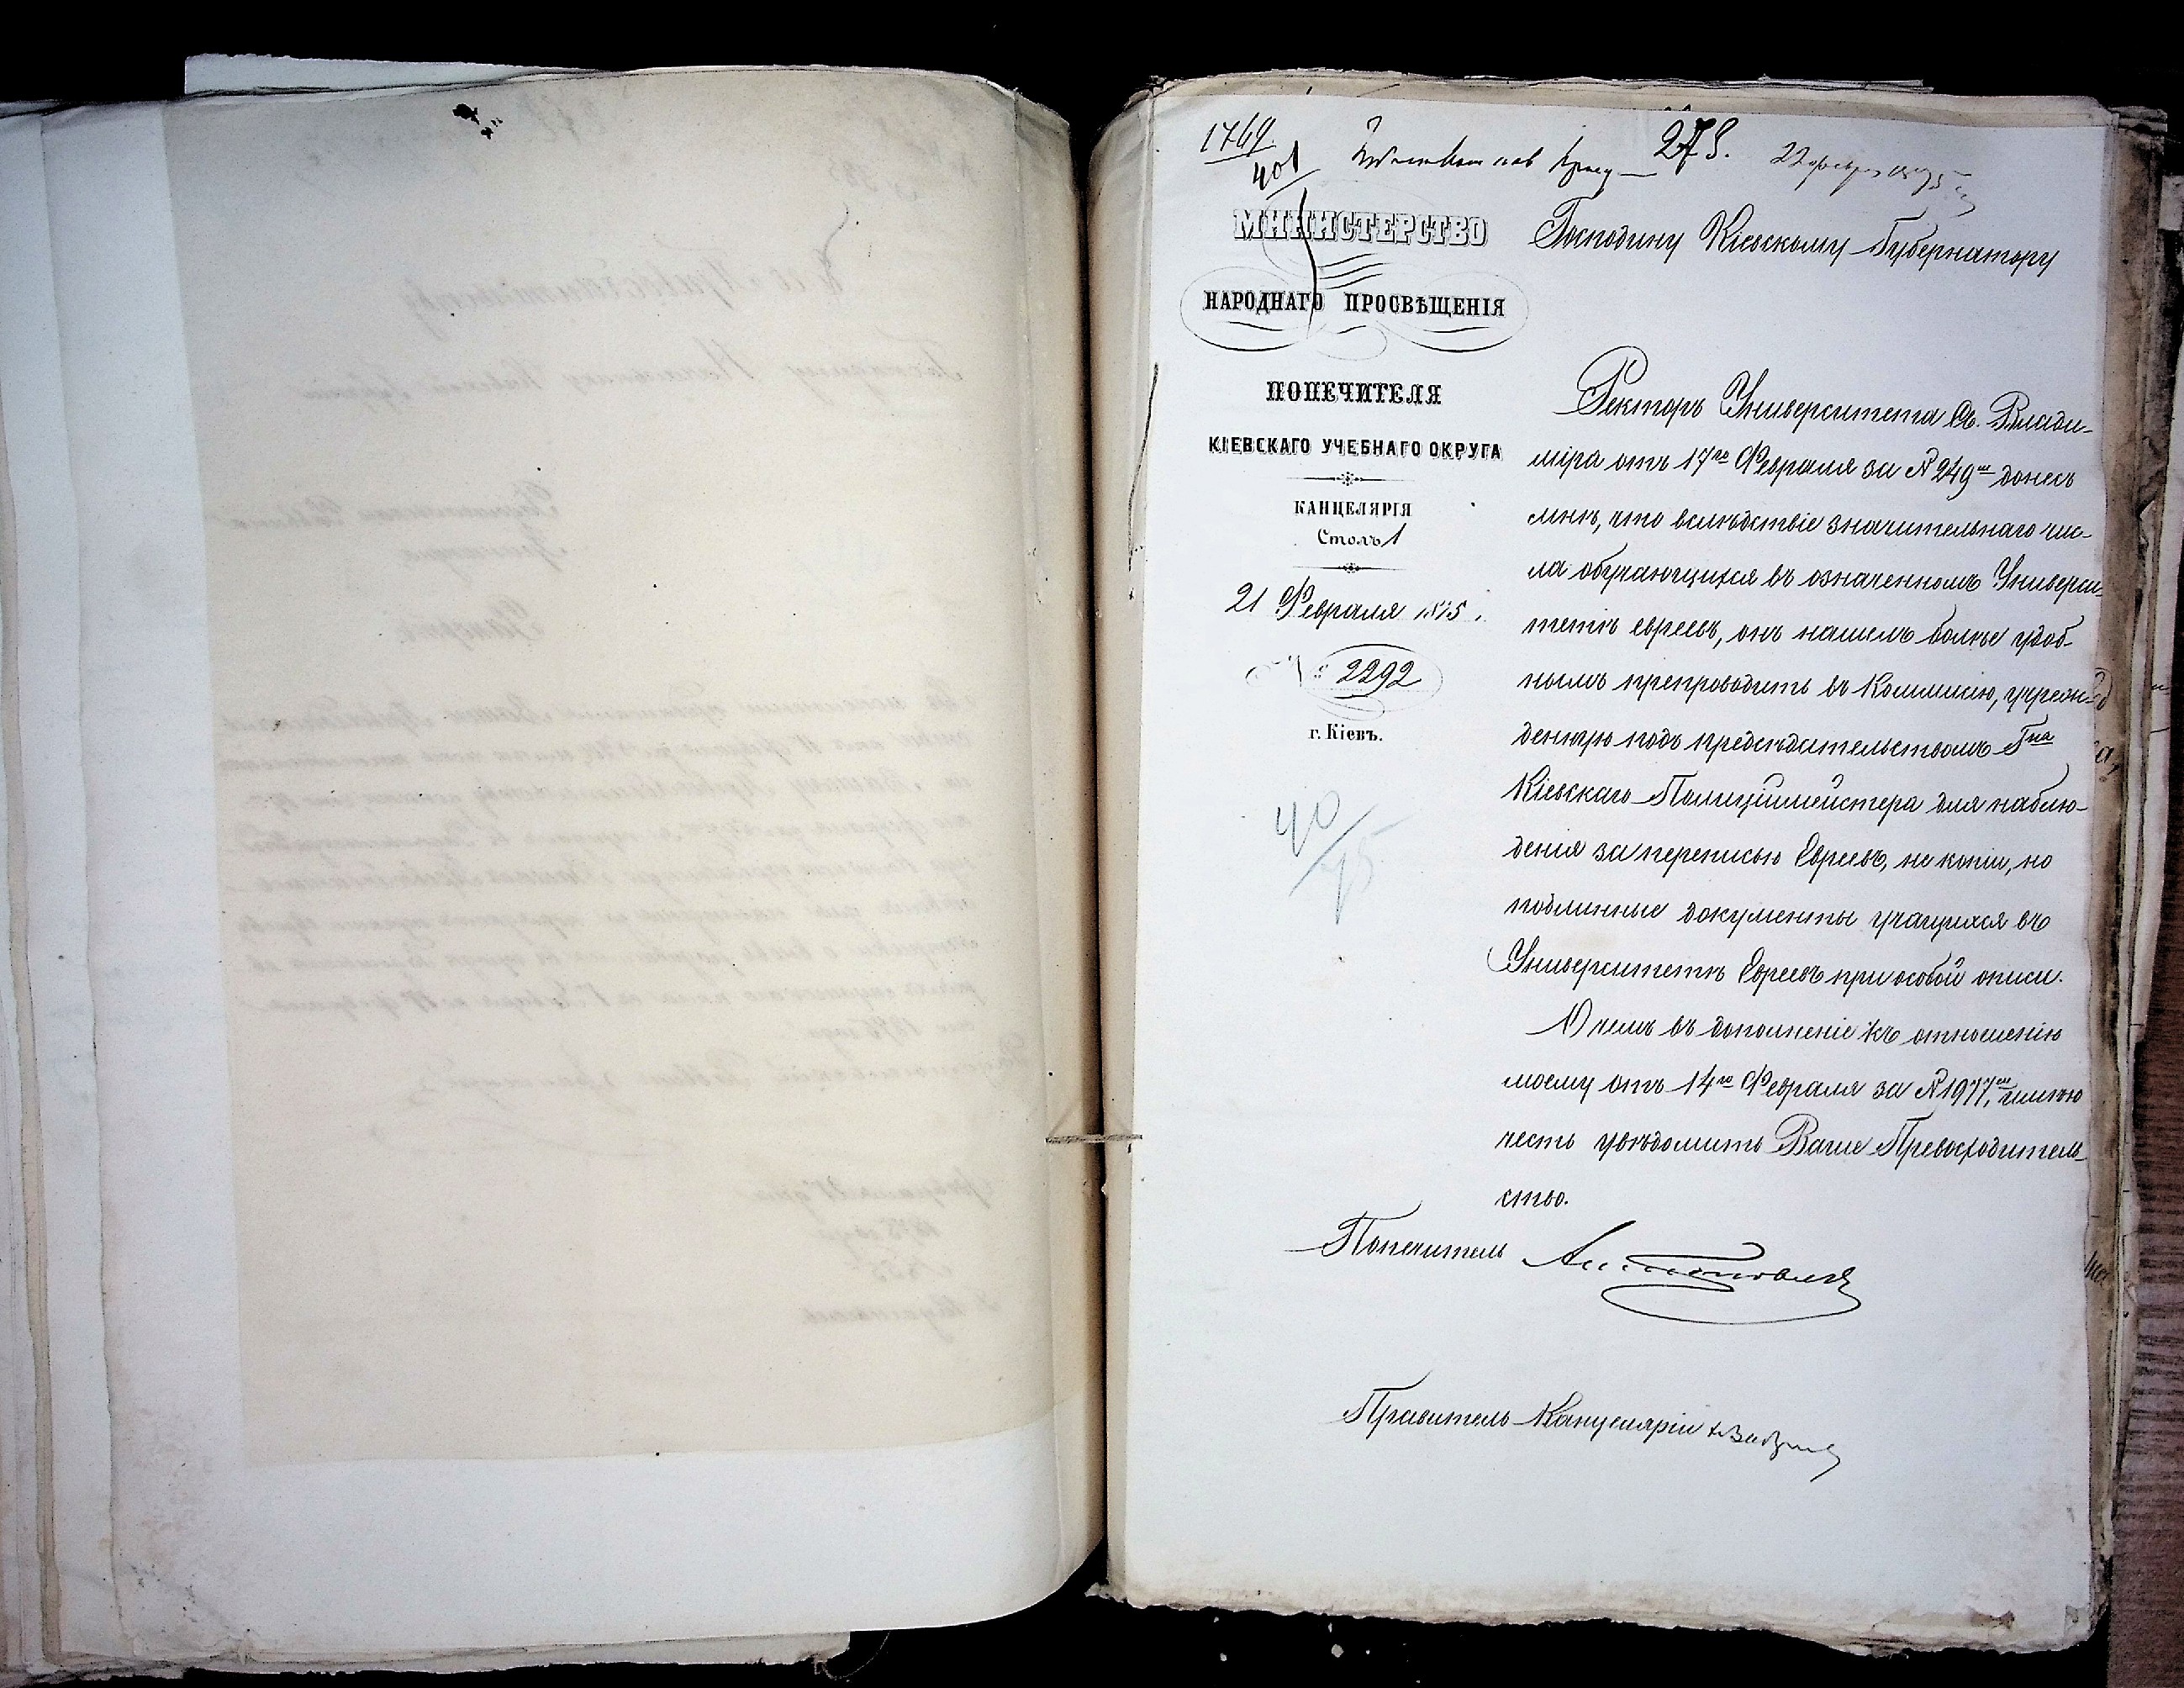 1769.
401
273.
22 февр 1875
МИНИСТЕРСТВО
НАРОДНАГО ПРОСВѢЩЕНІЯ
ПОПЕЧИТЕЛЯ
КІЕВСКАГО УЧЕБНАГО ОКРУГА
КАНЦЕЛЯРІЯ
Столъ 1
21 Февраля 1875 г.
№ 2292
г. Кіевъ.
40/75
Господину Кіевскому Губернатору
Ректоръ Университета Св. Влади-
міра отъ 17го Февраля за № 249м донесъ
мнѣ, что вслѣдствіе значительнаго чис-
ла обучающихся въ означенномъ Универси-
тетѣ евреевъ, онъ нашелъ болѣе удоб-
нымъ препроводить въ Коммисію, учреж-
денную подъ предсѣдательствомъ Гна
Кіевскаго Полиціймейстера для наблю-
денія за переписью Евреевъ, не копіи, но
подлинные документы учащихся въ
Университетѣ Евреевъ при особой описи.
О чемъ въ дополненіе къ отношенію
моему отъ 14го Февраля за № 1977м, имѣю
честь увѣдомить Ваше Превосходитель-
ство.
Попечитель Антоновичъ
Правитель Канцеляріи